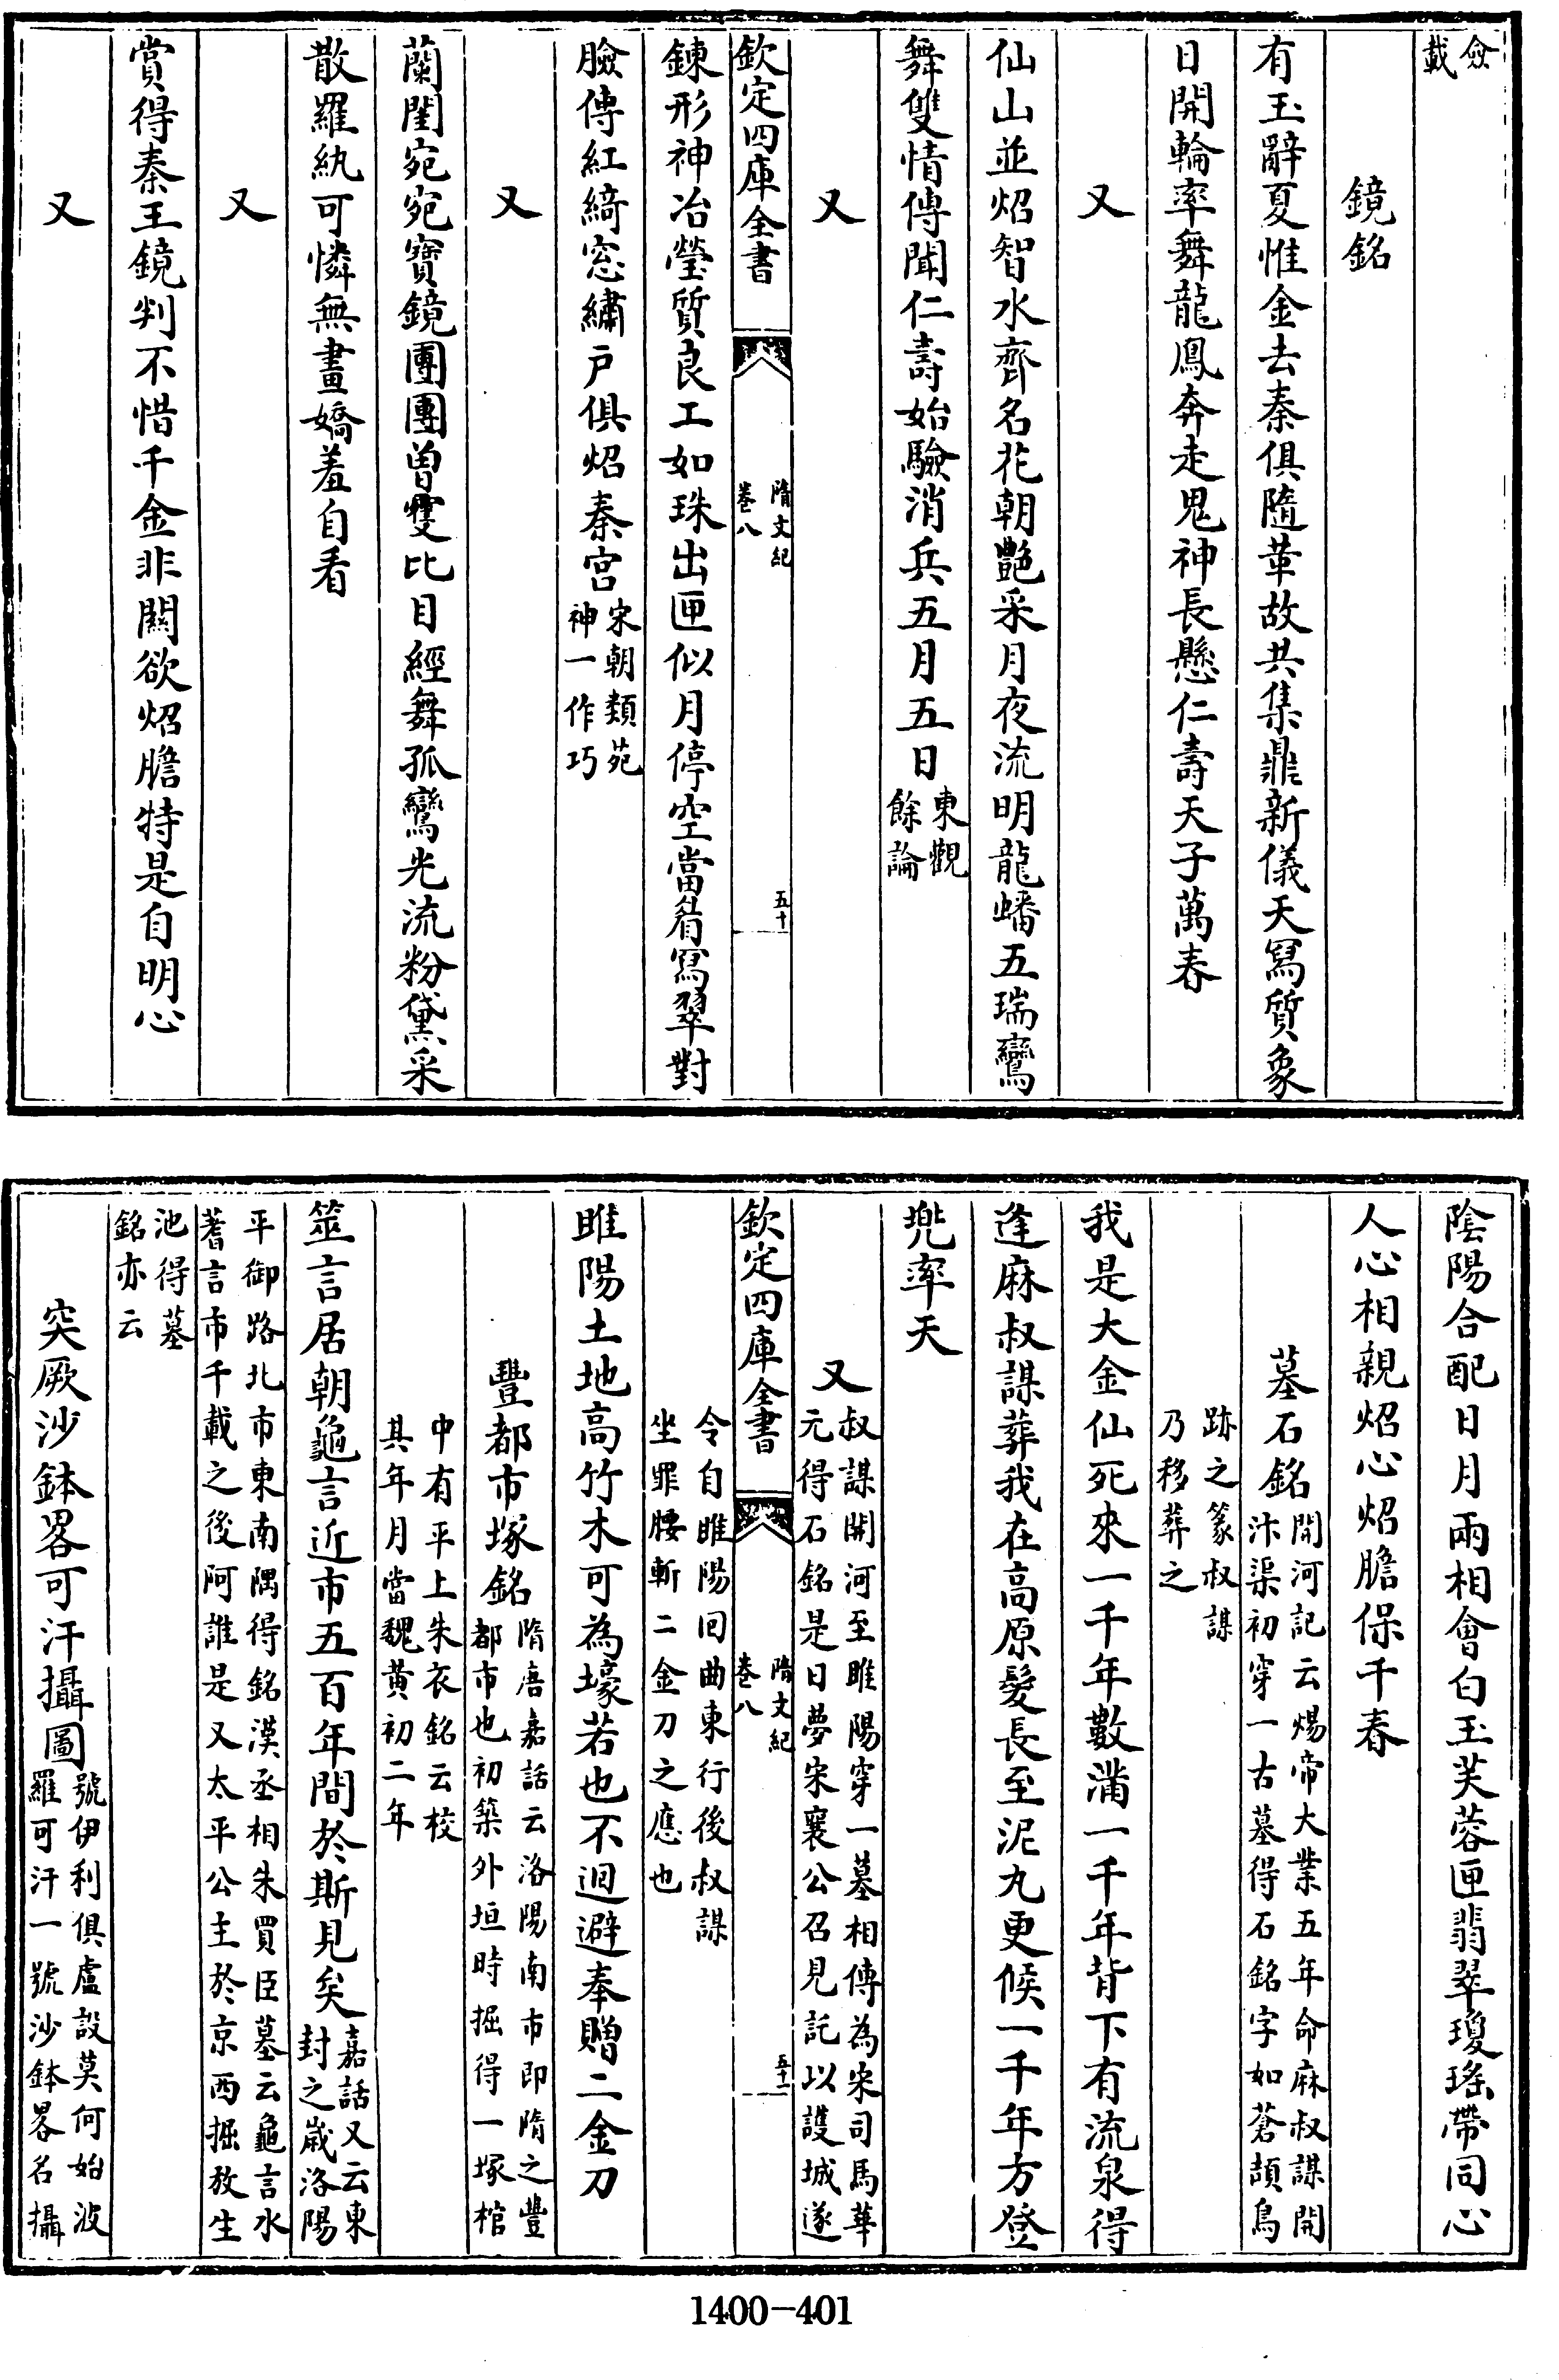 僉載
鏡銘
有玉辭夏惟金去秦俱隨革故共集鼎新儀天寫質象
日開輪率舞龍鳳奔走鬼神長懸仁壽天子萬春
又
仙山並炤智水齊名花朝艷采月夜流明龍蟠五瑞鸞
舞雙情傳聞仁壽始驗消兵五月五日東觀餘論
又
欽定四庫全書 隋文紀 卷八 五十
鍊形神冶瑩質良工如珠出匣似月停空當眉寫翠對
臉傳紅綺窓繡戶俱炤秦宮宋朝類苑神一作巧
又
蘭閨宛宛寶鏡團團曾雙比目經舞孤鸞光流粉黛采
散羅紈可憐無畫嬌羞自看
又
賞得秦王鏡判不惜千金非關欲炤膽特是自明心
又
陰陽合配日月兩相會白玉芙蓉匣翡翠瓊瑤帶同心
人心相親炤心炤膽保千春
墓石銘開河記云煬帝大業五年命麻叔謀開汴渠初穿一古墓得石銘字如蒼頡鳥
跡之篆叔謀乃移葬之
我是大金仙死來一千年數滿一千年背下有流泉得
逢麻叔謀葬我在高原髮長至泥丸更候一千年方登
兜率天
又叔謀開河至睢陽穿一墓相傳為宋司馬華元得石銘是日夢宋襄公召見託以護城遂
欽定四庫全書 隋文紀 卷八 五十一
令自睢陽回曲東行後叔謀坐罪腰斬二金刀之應也
睢陽土地高竹木可為壕若也不迴避奉贈二金刀
豐都市塚銘隋唐嘉話云洛陽南市即隋之豐都市也初築外垣時掘得一塚棺
中有平上朱衣銘云校其年月當魏黄初二年
筮言居朝龜言近市五百年間於斯見矣嘉話又云東封之歲洛陽
平御路北市東南隅得銘漢丞相朱買臣墓云龜言水蓍言市千載之後阿誰是又太平公主於京西掘放生
池得墓銘亦云
突厥沙鉢畧可汗攝圖號伊利俱盧設莫何始波羅可汗一號沙鉢畧名攝
1400-401